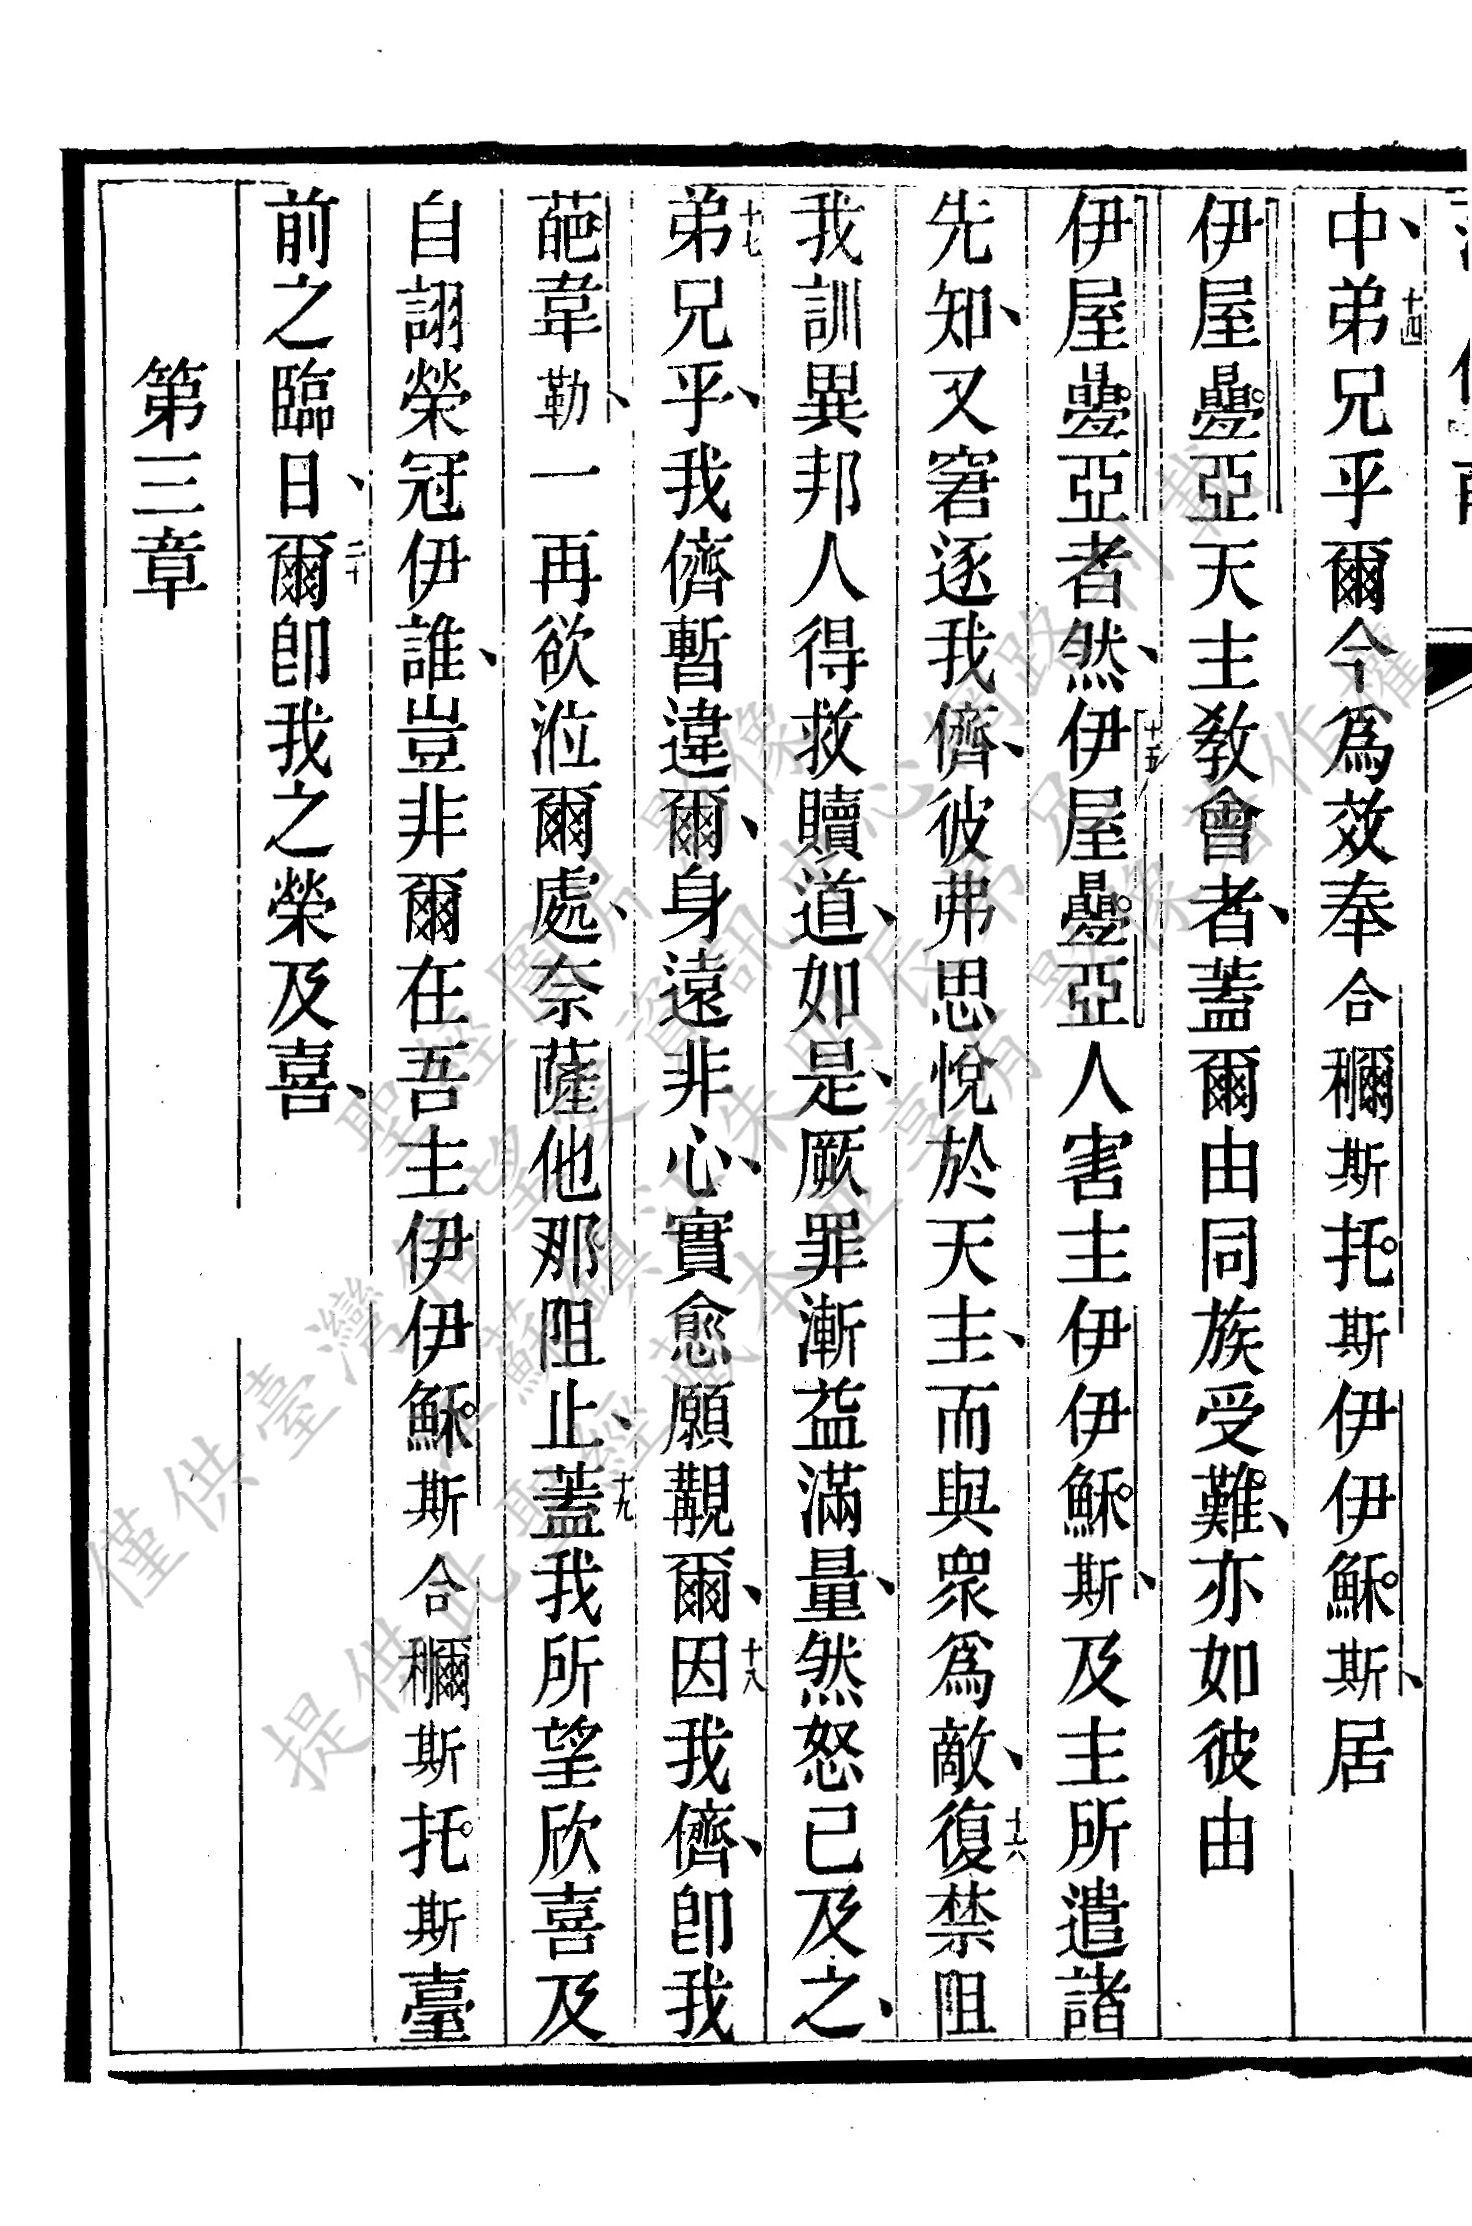 中、十四弟兄乎爾今爲效奉合穪斯托斯伊伊穌斯、居
伊屋疊亞天主敎會者、蓋爾由同族受難、亦如彼由
伊屋疊亞者然、十五伊屋疊亞人害主伊伊穌斯、及主所遣諸
先知、又窘逐我儕、彼弗思悅於天主、而與眾爲敵、十六復禁阻
我訓異邦人得救贖道、如是、厥罪漸益滿量、然怒已及之、
十七弟兄乎、我儕暫違爾、身遠非心、實愈願覩爾、十八因我儕、卽我
葩韋勒、一再欲涖爾處、奈薩他那阻止、十九蓋我所望欣喜及
自詡榮冠伊誰、豈非爾在吾主伊伊穌斯合穪斯托斯臺
前之臨日、二十爾卽我之榮及喜、
第三章
僅供臺灣信望愛資訊中心網路刊載